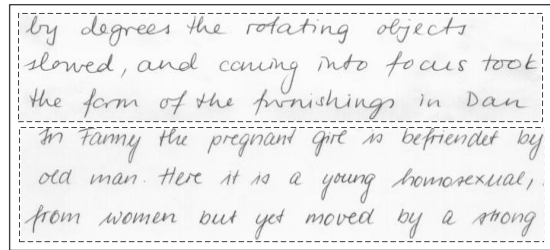 by degrees the rotating objects
slowed, and coming into focus took
the form of the furnishings in Dan
In Fanny the pregnant girl is befriendet by
old man. Here it is a young homosexual,
from women but yet moved by a strong